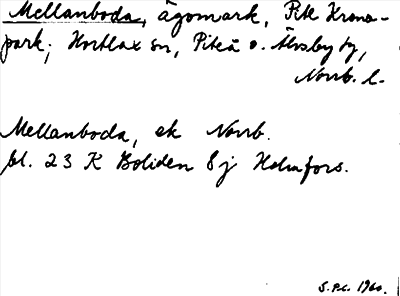 Mellanboda, ägomark, Pite Krono-
park; Hortlax sn, Piteå o. Älvsby tg,
Norrb. l.
Mellanboda, ek Norrb.
bl. 23 K Boliden 8j Holmfors.
S.P.C. 1960.